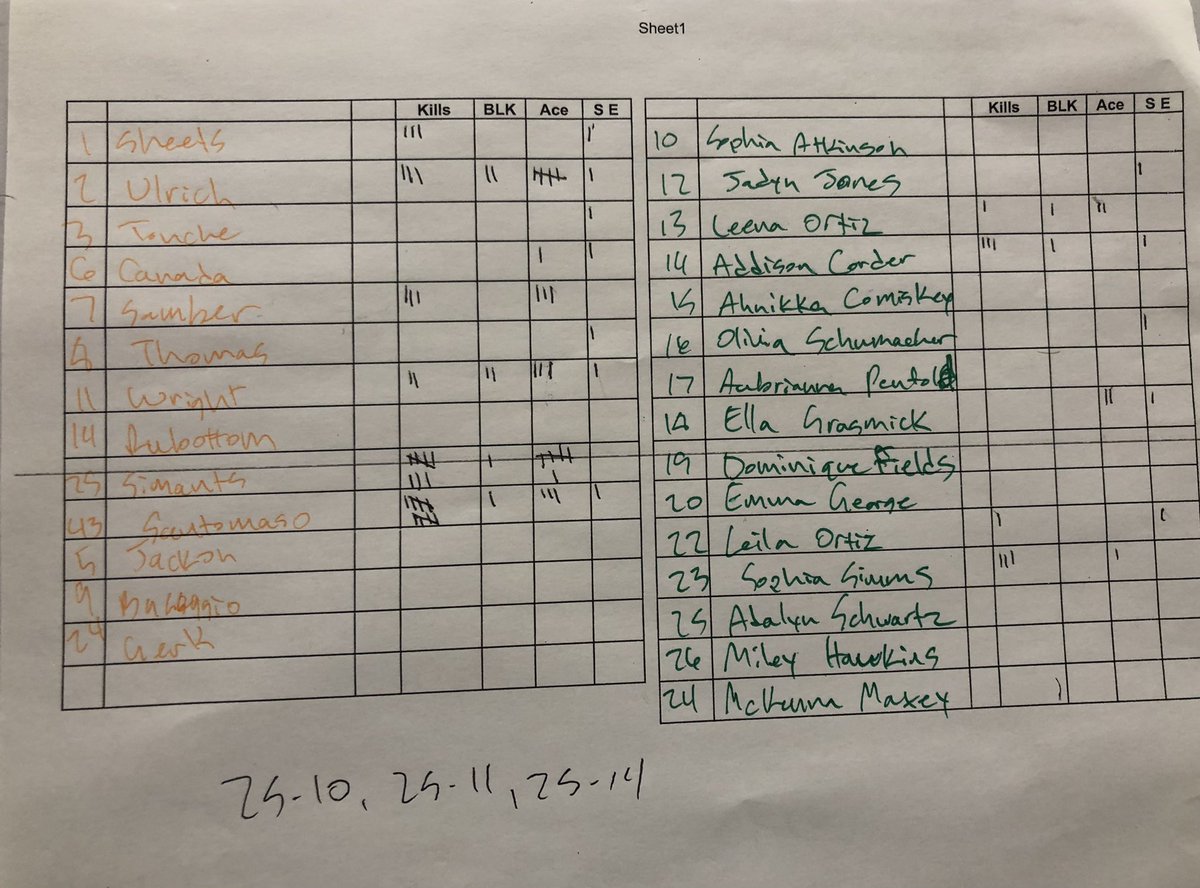 Sheet1
Kills BLK Ace S E
1 Sheets III I
2 Ulrich III II IIII I
3 Touche I
6 Canada I I
7 Sumber III III
8 Thomas I
11 Wright II II IIII I
14 Rubottom
25 Simants I
43 Santomaso I III I
5 Jackson
9
24 Gerk
Kills BLK Ace S E
10 Sophia Atkinson
12 Jadyn Jones I
13 Leena Ortiz I I II
14 Addison Corder III I I
15 Ahnikka Comiskey
16 Olivia Schumacher I
17 Aubrianna
18 Ella Grasmick II I
19 Dominique Fields
20 Emma George
22 Leila Ortiz I I
23 Sophia Simms III I
25 Adalyn Schwartz
26 Miley Hawkins
24 McKenna Maxey
25-10, 25-11, 25-14